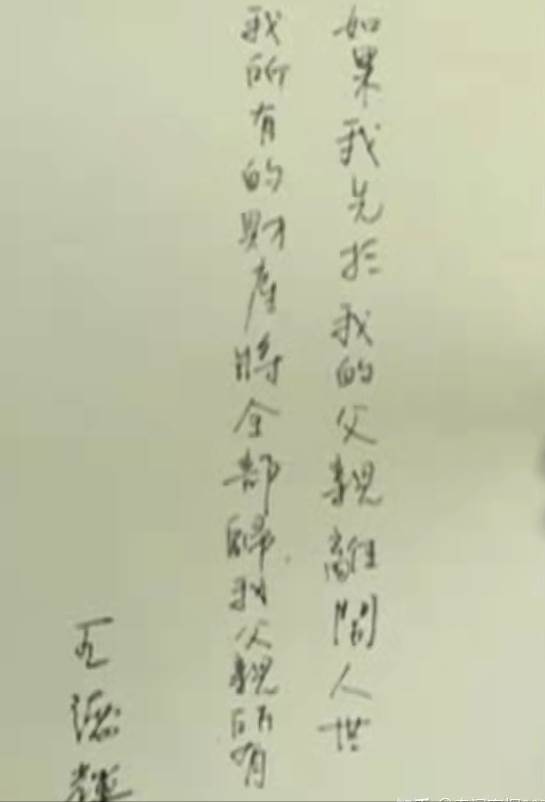 如果我先於我的父親離開人世
我所有的財產將全部歸我父親所有
王德輝